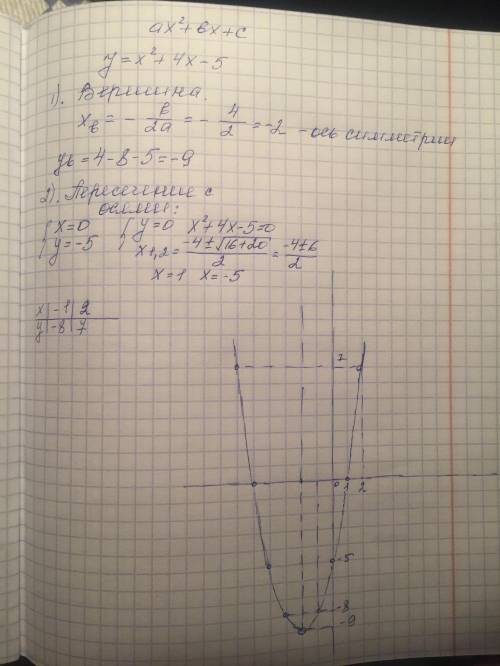 ax²+bx+c
y=x²+4x-5
1). Вершина.
xв = - b/2a = - 4/2 = -2 - ось симметрии
yв = 4-8-5 = -9
2). Пересечение с
осями:
{x=0 {y=0 x²+4x-5=0
{y=-5 x1,2 = (-4±√16+20)/2 = (-4±6)/2
x=1 x=-5
x | -1 | 2
y | -8 | 7
7
0 1 2
-5
-8
-9